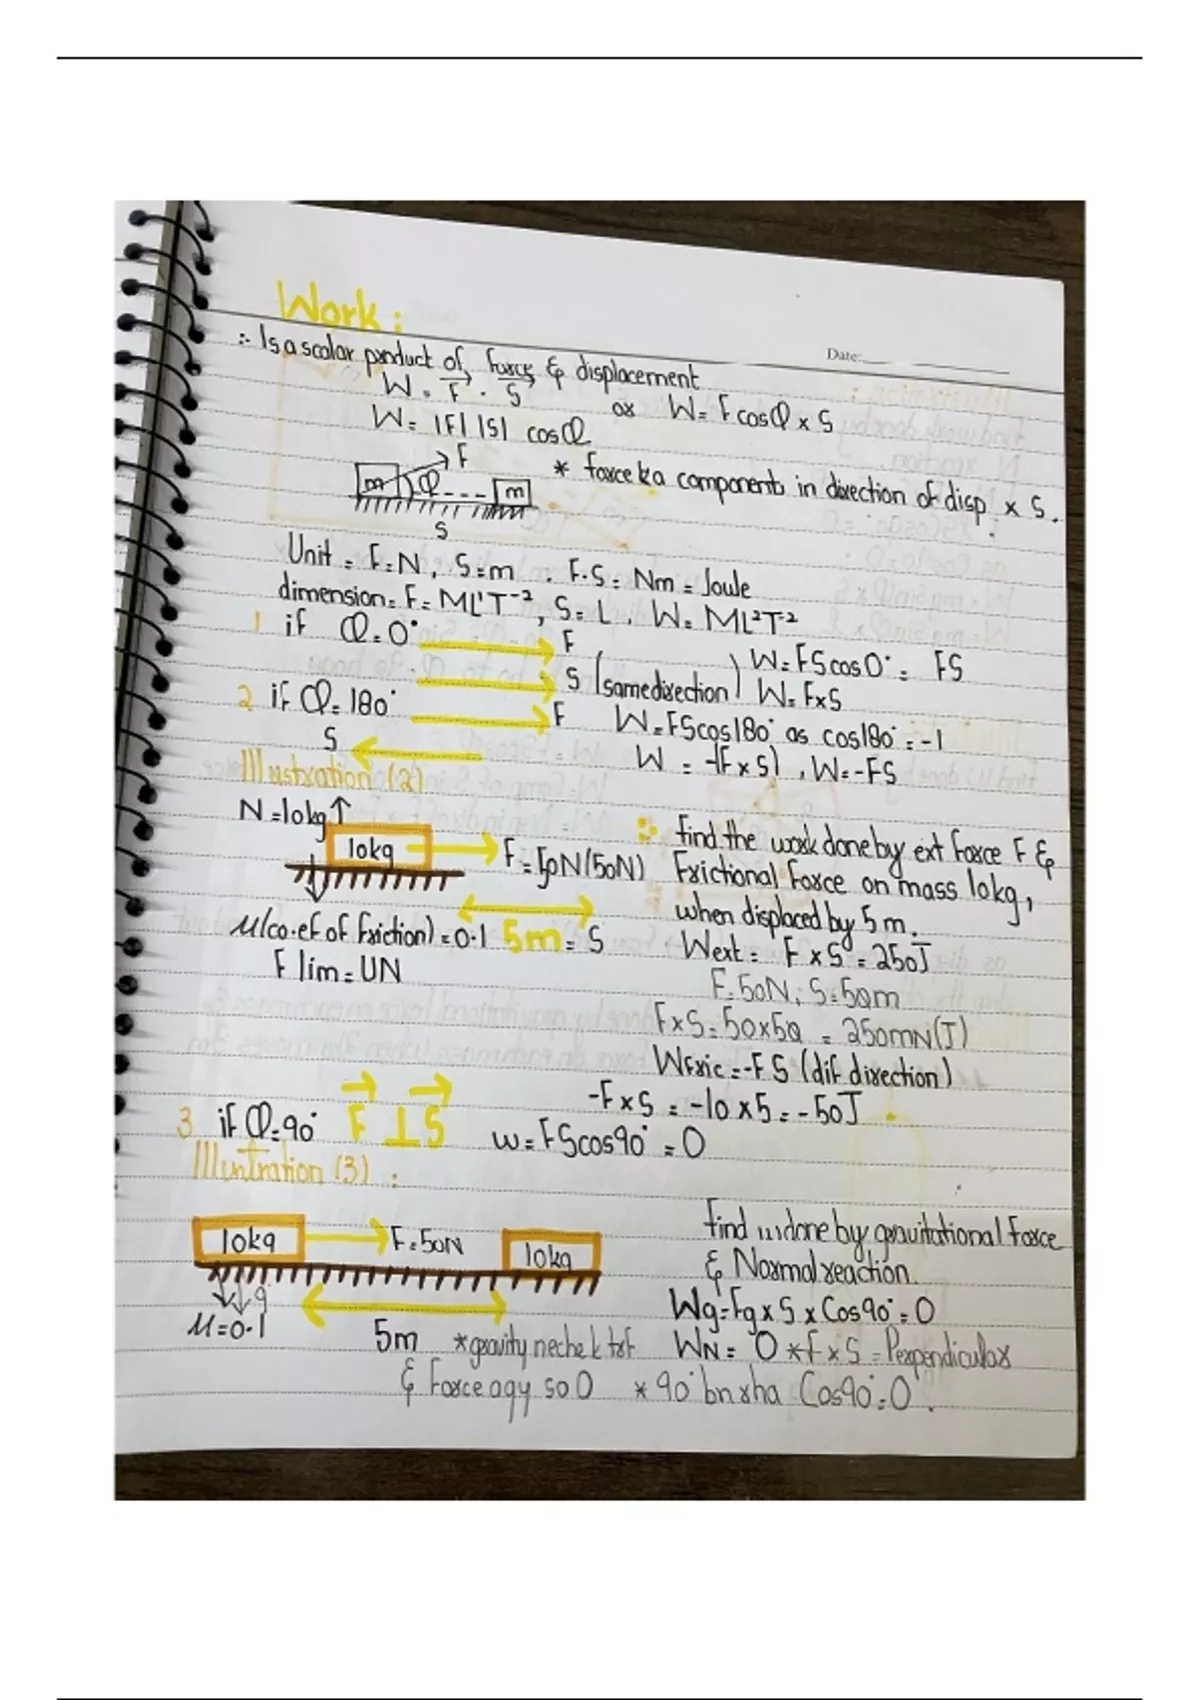 Work:
Date:
:- Is a scalar product of Force & displacement
W = F . S or W = F cosθ x S
W = |F| |S| cosθ
F
m θ m
* force ka components in direction of disp x S.
S
Unit = F=N, S=m . F.S = Nm = Joule
dimension = F = ML'T⁻², S = L, W = ML²T⁻²
1 if θ=0° F
S (same direction) W=FScos0° = FS
W=FxS
2 if θ=180° F W=FScos180° as cos180° = -1
S W = -(FxS), W=-FS
Illustration (2)
N=10kg ↑
10kg
F = N (50N)
find the work done by ext force F &
Frictional force on mass 10kg,
when displaced by 5m.
M(co.ef of friction) = 0.1 5m = S
F lim = UN
Wext = F x S = 250J
F=50N, S=5m
FxS = 50x5 = 250mN(J)
WFric = -F S (dif direction)
-FxS = -10x5 = -50J
3 if θ=90° F ⊥ S W=FScos90° = 0
Illuntration (3) :
10kg F=50N 10kg
g
M=0.1
5m
find done by gravitational force
& Normal reaction.
Wg=Fg x S x Cos90°=0
*gravity neche k trf WN = 0 *f x S = Perpendicular
& Force agy so 0 *90° bn rha Cos90°=0.